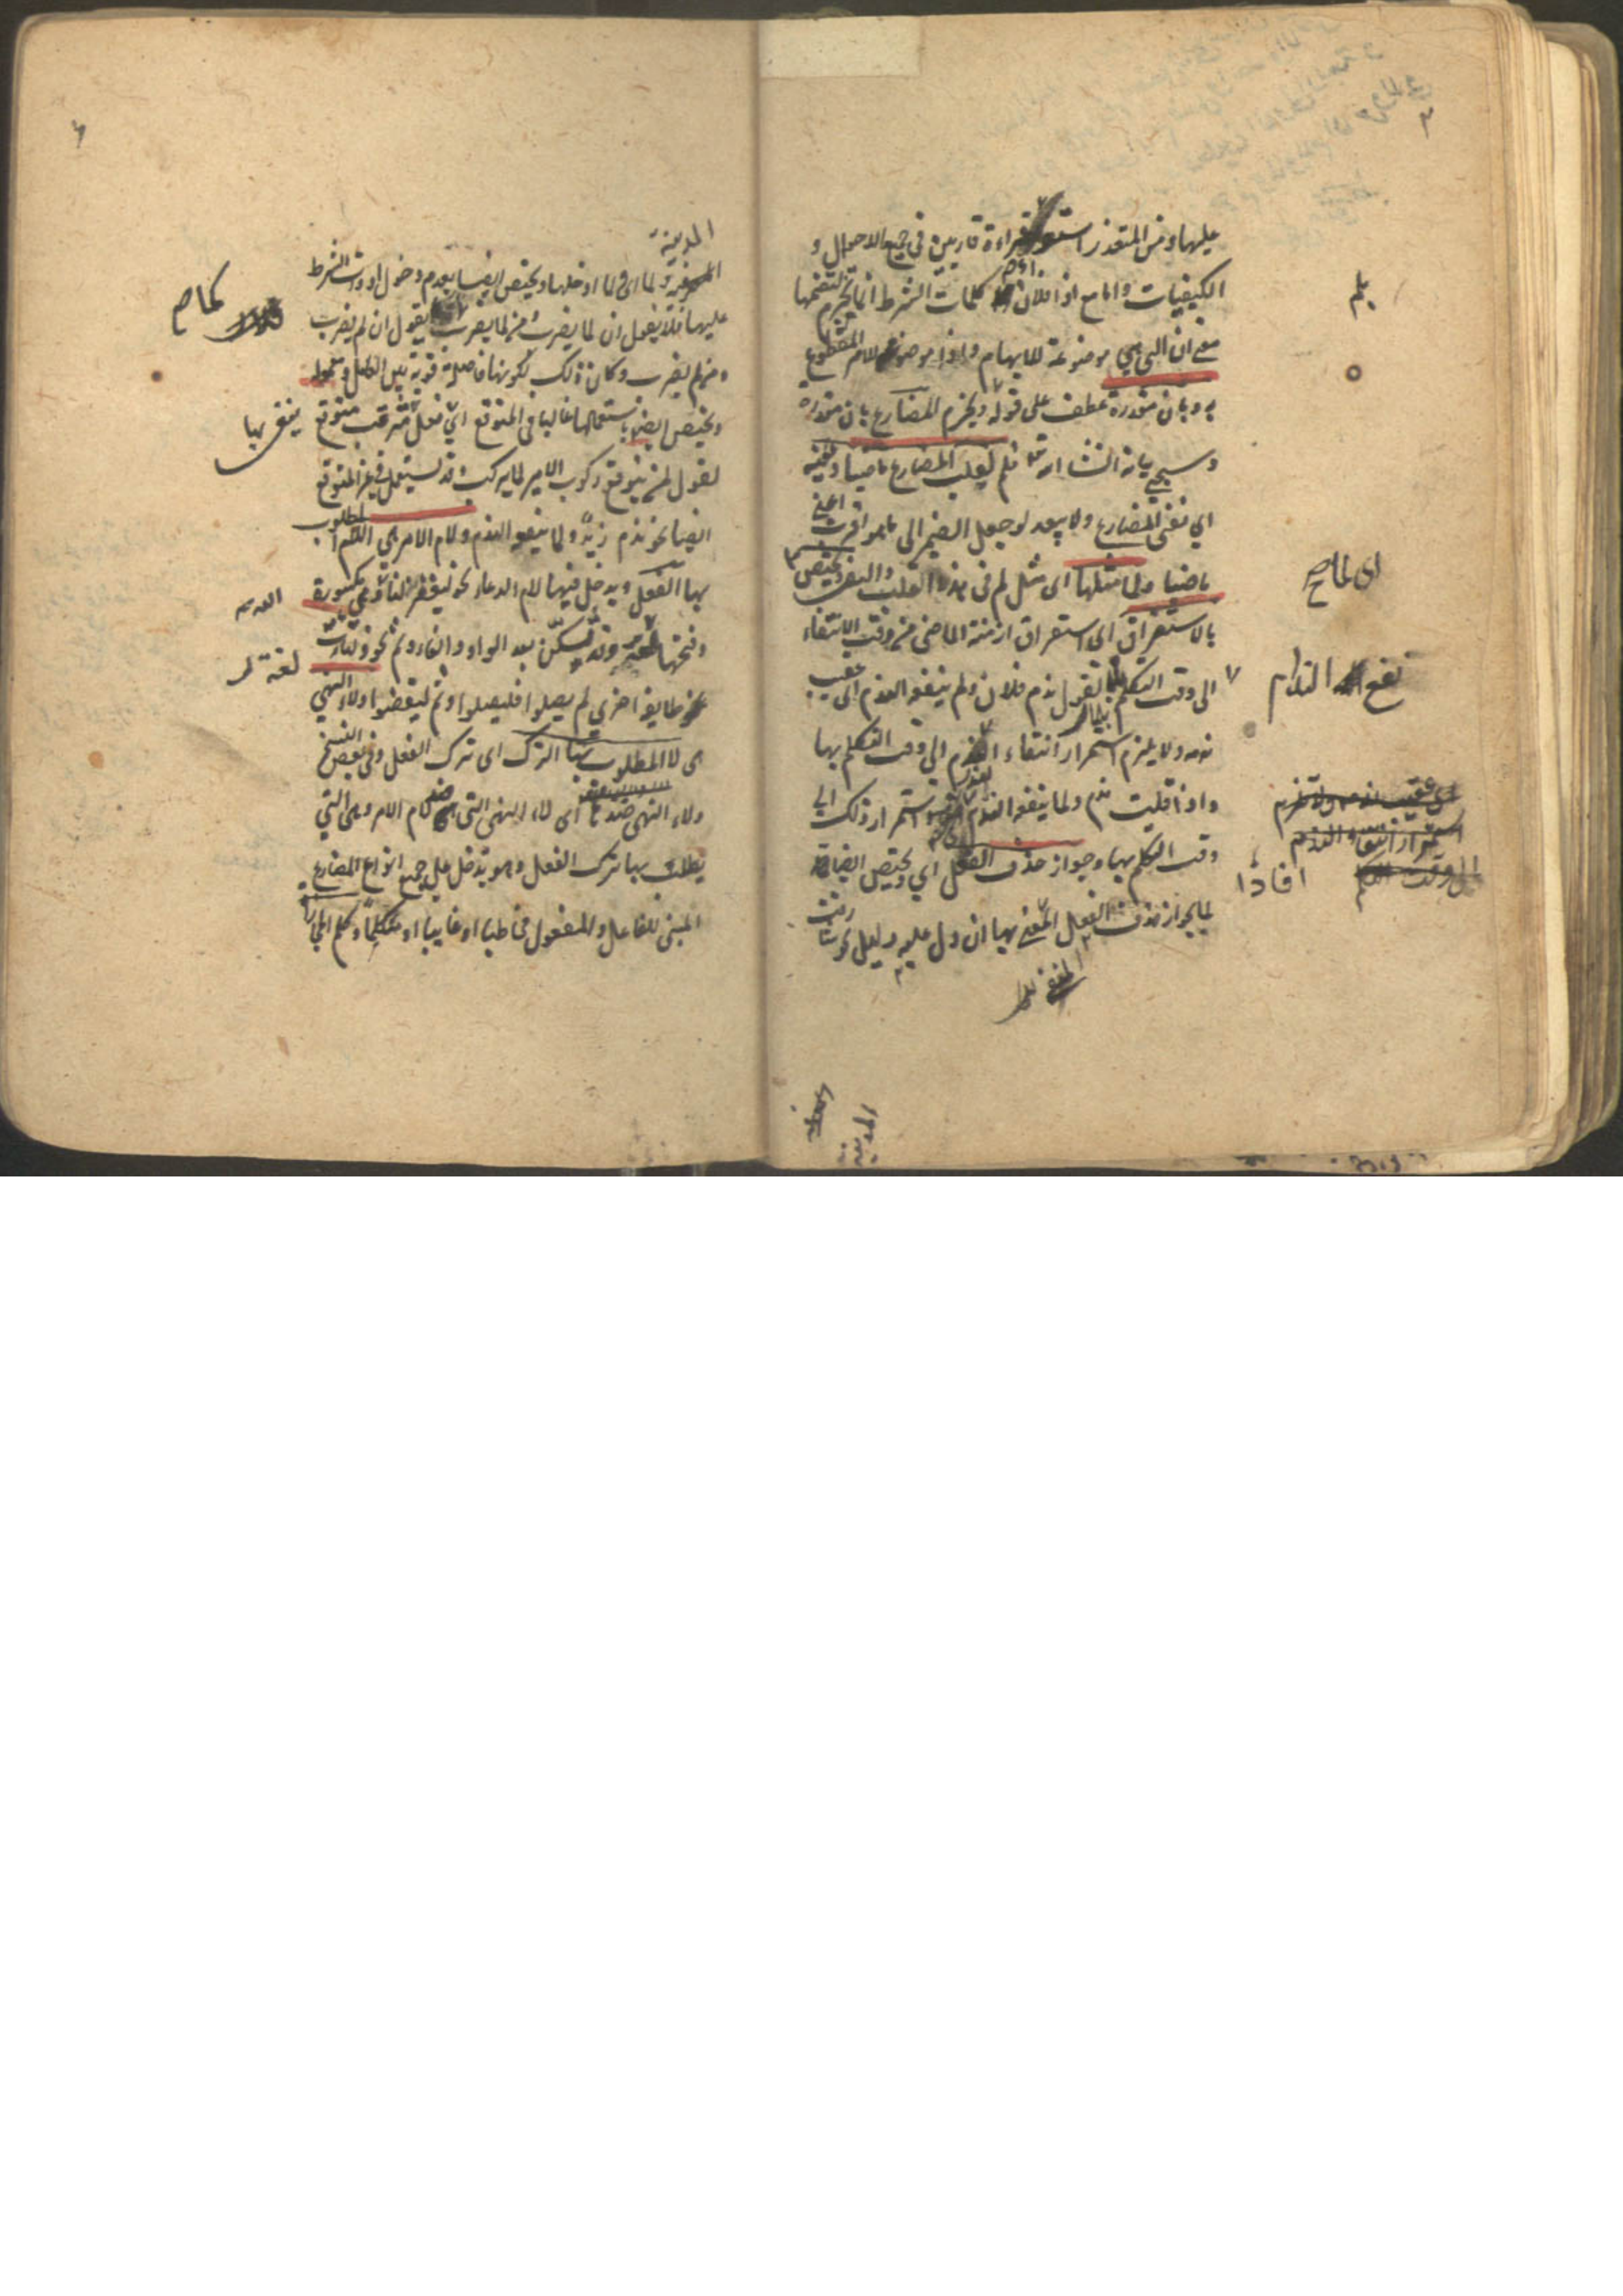 عليها ومن المتعذر استقراءة قارئين في جميع الاحوال و
الكيفيات واما مع اذا فلان كلمات الشرط انما تجزم لتضمنها
معنى ان التي هي موضوعة للابهام واذا موضوع للامر المقطوع
به وبان مقدرة عطف على قوله ويجزم المضارع بان مقدرة
وسيجئ بيانه انشاء الله فلم لقلب المضارع ماضيا ونفيه
اي نفي المضارع ولا يبعد لو جعل الضمير الى ما هو اقرب اعني
ماضيا ولما مثلها اي مثل لم في هذا القلب والنفي ويختص
بالاستغراق اي استغراق ازمنة الماضي من وقت الانتفاء
الى وقت التكلم بلما تقول ندم فلان ولم ينفعه الندم اي عقيب
ندمه ولا يلزم استمرار انتفاء الى وقت التكلم بها
واذا قلت ندم ولما ينفعه الندم استمرار ذلك الى
وقت التكلم بها وجواز حذف الفعل اي ويختص ايضا
لما بجواز حذف الفعل المنفي بها ان دل عليه دليل نحو
بلم
اي لما ص
نفع الندم
عقيب ندمه ولا يلزم
استمرار انتفاء الندم
الى وقت التكلم
افادا
المدينة
المدينة
ولما اي ولما ادخلها ويختص ايضا بعدم دخول ادوات الشرط
عليها فلا يقول ان لما يضرب ومن لما يضرب يقول ان لم يضرب
ومن لم يضرب وكان ذلك لكونها فاصلة قوية بين العامل ومعموله
ويختص ايضا باستعمالها غالبا في المتوقع اي فعل مترقب متوقع
تقول لمن يتوقع ركوب الامير لما يركب وقد يستعمل في غير المتوقع
ايضا نحو ندم زيد ولما ينفعه الندم ولام الامر هي اللام المطلوب
بها الفعل ويدخل فيها لام الدعاء نحو ليغفر لنا الله وهي مكسورة
وفتحها لغة وقد تسكن بعد الواو والفاء وثم نحو ولتأت
طايفة اخرى لم يصلوا فليصلوا وثم ليقضوا ولاء النهي
هي لا المطلوب بها الترك اي ترك الفعل وفي بعض النسخ
ولاء النهي ضدها اي لاء النهي التي ضد لام الامر وهي التي
يطلب بها ترك الفعل وهو تدخل على جميع انواع المضارع
المبني للفاعل والمفعول مخاطبا او غايبا او متكلما وكلم المجازاة
كما ص
ينفى بها
لغة